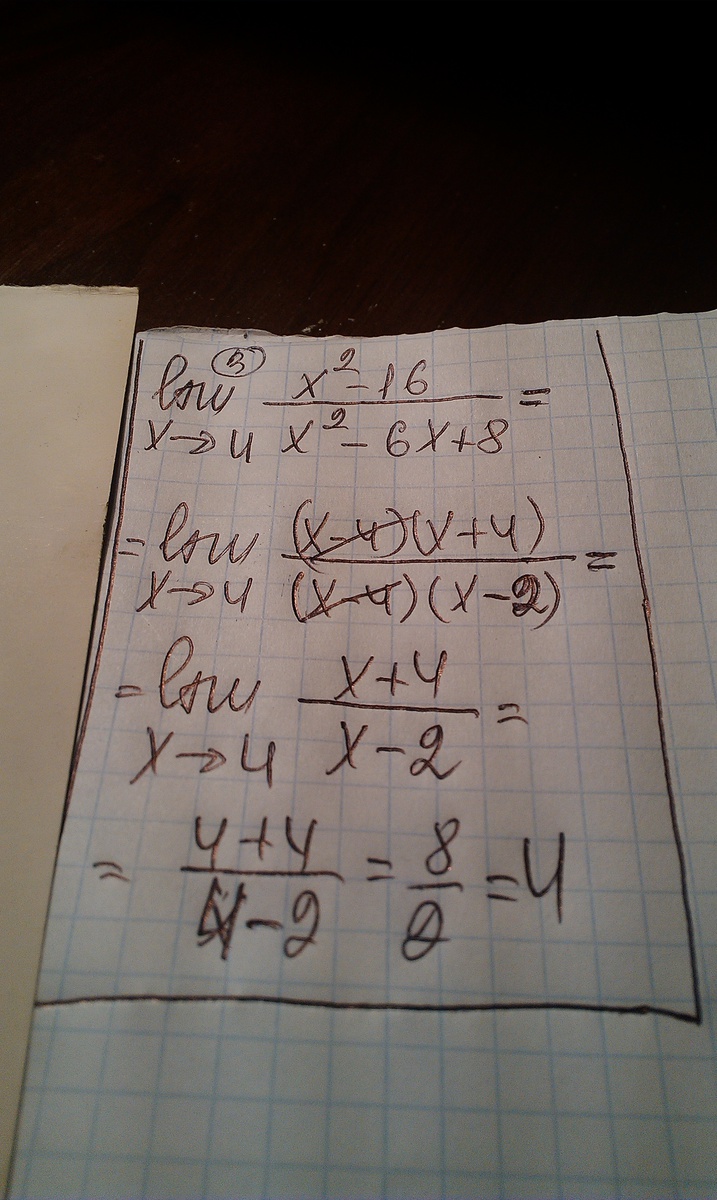 ③
lim x→4 (x²-16)/(x²-6x+8) =
= lim x→4 ((x-4)(x+4))/((x-4)(x-2)) =
= lim x→4 (x+4)/(x-2) =
= (4+4)/(4-2) = 8/2 = 4